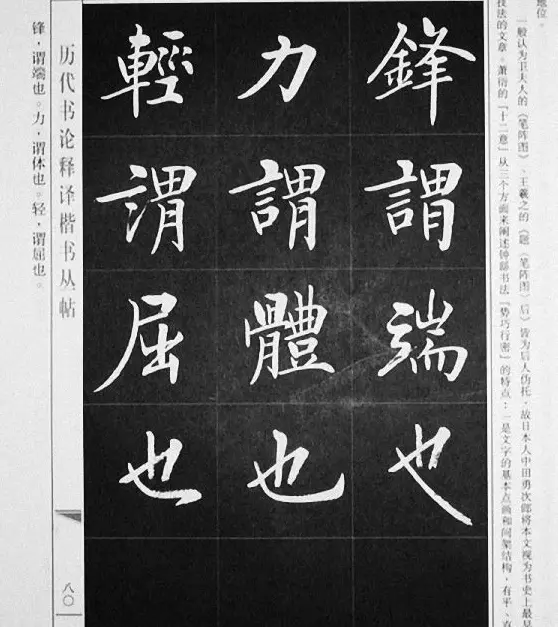 地位。
一般认为卫夫人的《笔阵图》、王羲之的《题〈笔阵图〉后》皆为后人伪托，故日本人中田勇次郎将本文视为书史上最早
技法的文章。萧衍的『十二意』从三个方面来阐述钟繇书法『势巧行密』的特点：一是文字的基本点画和间架结构，有平、直
鋒謂端也
力謂體也
輕謂屈也
历代书论释译楷书丛帖
八〇
锋，谓端也。力，谓体也。轻，谓屈也。